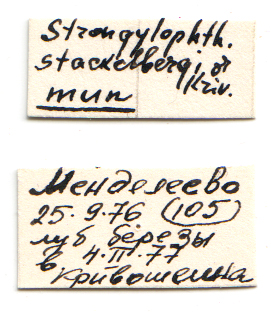 Strongylophth.
stackelbergi ♂
Kriv.
тип
Менделеево
25.9.76 (105)
луб березы
в 4.III.77
Кривошеина